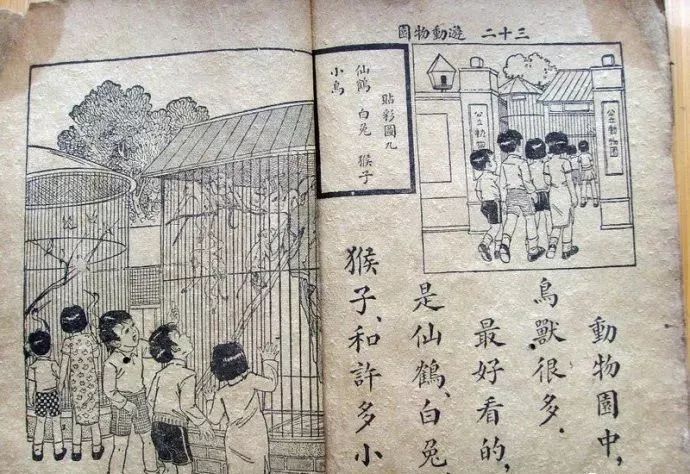 三十二 遊動物園
公立動物園
公立動物園
貼彩圖九
仙鶴 白兔 猴子
小鳥
動物園中，
鳥獸很多．
最好看的，
是仙鶴、白兔
猴子、和許多小